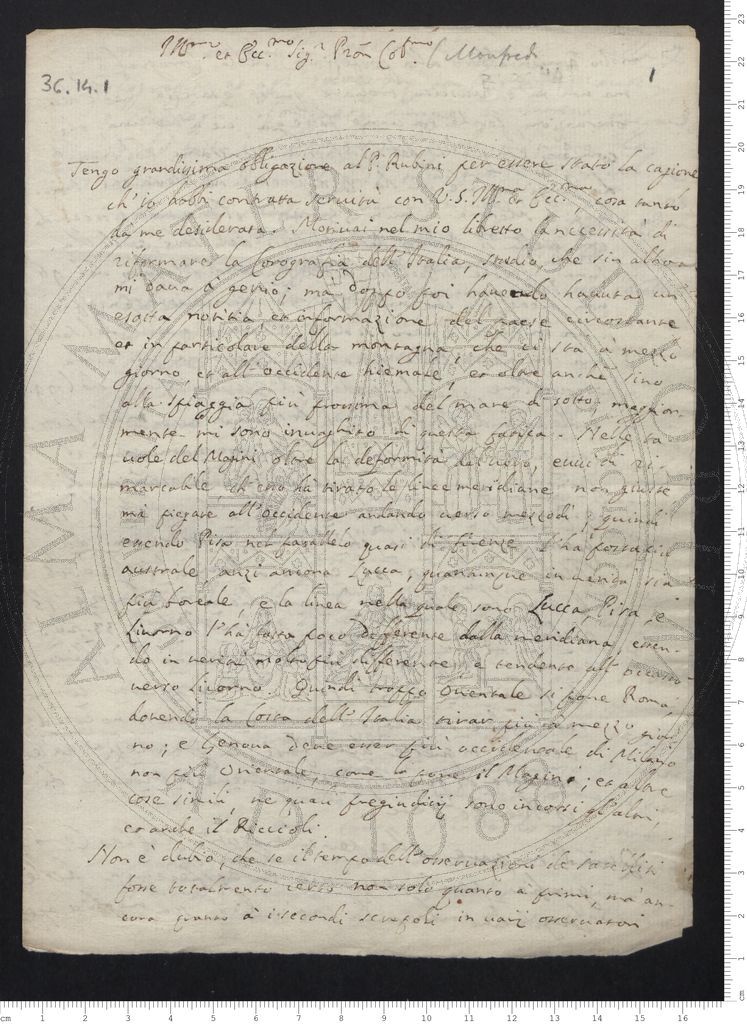 Ill.mo et Ecc.mo Sig.r Pron Col.mo
Manfredi
36.14.1
1
Tengo grandissima obligazione al P. Rubini per essere stato la cagione
ch' io habbi contratta servitù con V.S. Ill.ma et Ecc.ma, cosa tanto
da me desiderata. Motivai nel mio libretto la necessità di
riformare la Corografia dell' Italia, studio, che sin allhora
mi dava à genio; mà doppo poi havendo havuta un
esatta notitia et informazione del paese circostante
et in particolare della montagna, che ci sta à mezzo
giorno, et all' occidente hiemale, et oltre anche sino
alla spiaggia più prossima del mare di sotto, maggior-
mente mi sono invaghito di questa fatica. Nelle ta
vole del Magini oltre la deformità del vero, evvi di ri-
marcabile ch' esso hà tirato le linee meridiane non giuste
mà piegate all' occidente andando verso mezzodì; quindi
essendo Pisa nel parallelo quasi di Firenze l' hà posta più
australe anzi ancora Lucca, quantunque in verità sia
più boreale, e la linea nella quale sono Lucca, Pisa, e
Livorno l' hà posta poco differente dalla meridiana, essen-
do in verità molto più differente, e tendente all' occaso
verso Livorno. Quindi troppo Orientale si pone Roma,
dovendo la Costa dell' Italia tirar più à mezzo gior
no; e Genova deve esser più occidentale di Milano
non più Orientale, come la pone il Magini; et altre
cose simili, ne quali pregiudicij sono incorsi gl' altri,
et anche il Riccioli.
Non è dubio, che se il tempo dell' osservazioni de satelliti
fosse totalmente certo non solo quanto à primi, mà an-
cora quanto à i secondi scrupoli in varij osservatori
ALMA MATER STUDIORUM
A.D. 1088